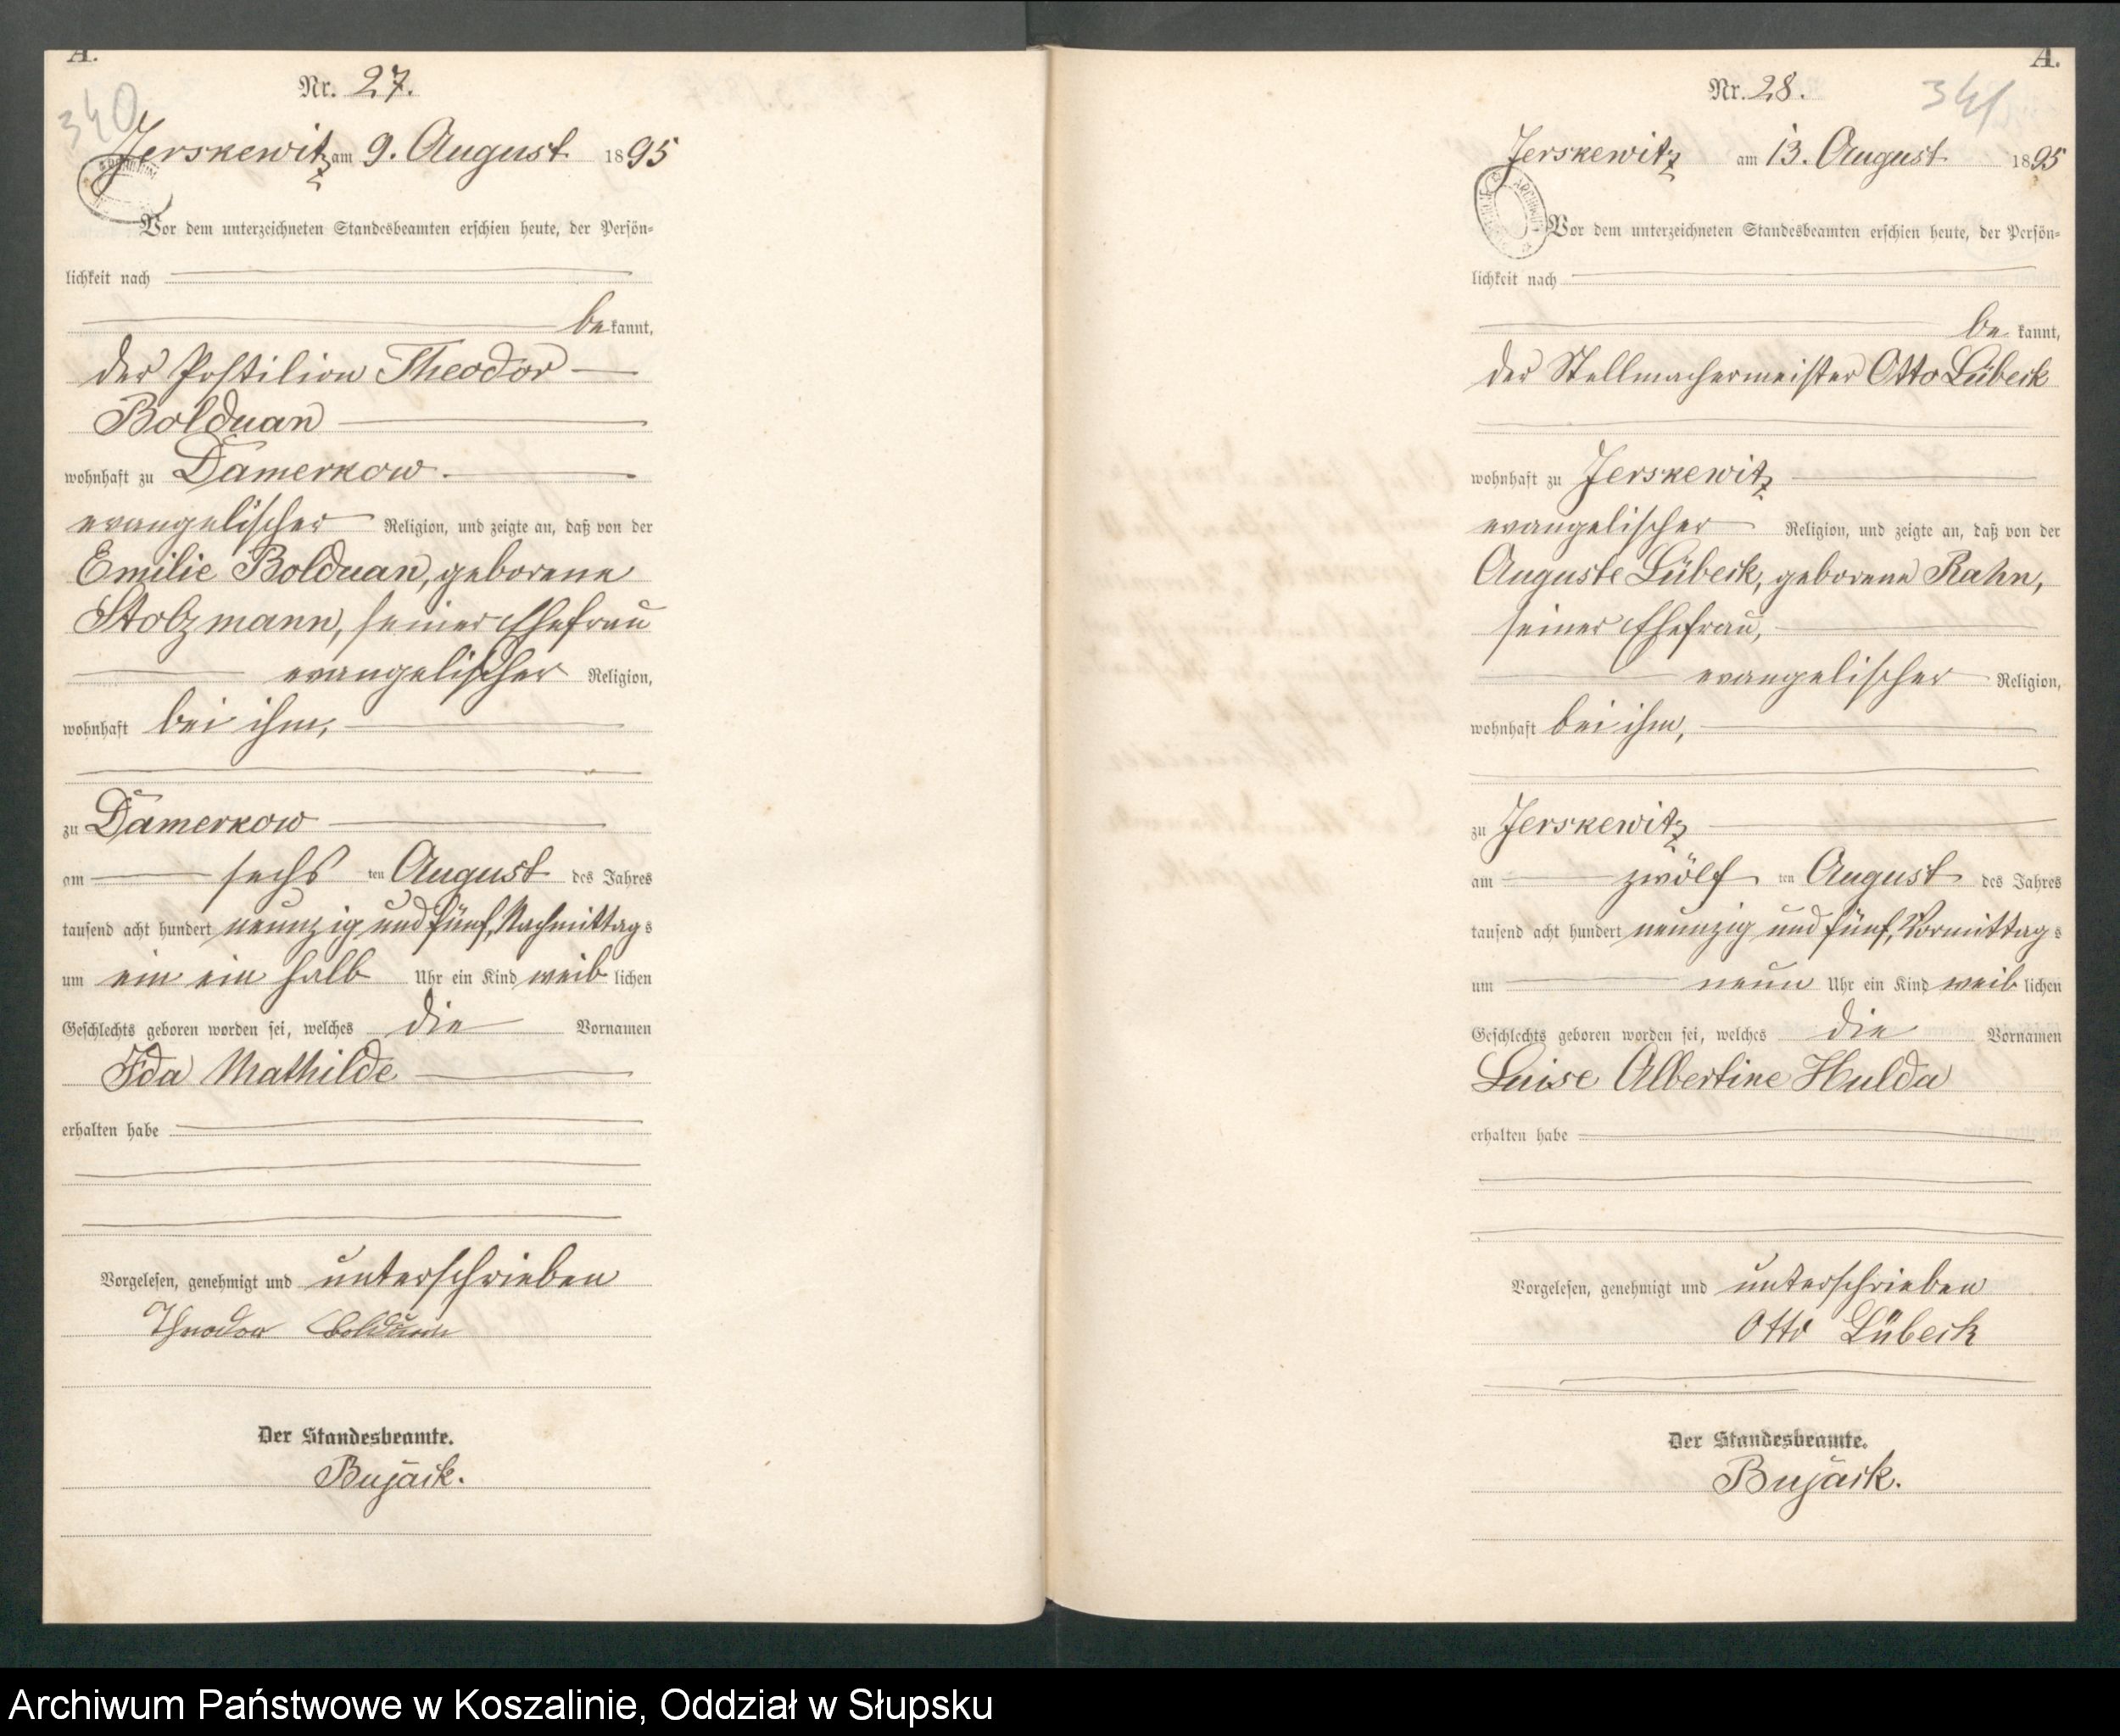 A.
Nr. 27.
340
Jerskewitz am 9. August 1895
Vor dem unterzeichneten Standesbeamten erschien heute, der Persön-
lichkeit nach
be kannt,
der Postilion Theodor
Bolduan
wohnhaft zu Damerkow.
evangelischer Religion, und zeigte an, daß von der
Emilie Bolduan, geborene
Stolzmann, seiner Ehefrau
evangelischer Religion,
wohnhaft bei ihm,
zu Damerkow
am sechs ten August des Jahres
tausend acht hundert neunzig und fünf, Nachmittag s
um ein ein halb Uhr ein Kind weib lichen
Geschlechts geboren worden sei, welches die Vornamen
Ida Mathilde
erhalten habe
Vorgelesen, genehmigt und unterschrieben
Theodor Bolduan
Der Standesbeamte.
Bujack.
A.
Nr. 28.
341
Jerskewitz am 13. August 1895
Vor dem unterzeichneten Standesbeamten erschien heute, der Persön-
lichkeit nach
be kannt,
der Stellmachermeister Otto Lübeck
wohnhaft zu Jerskewitz
evangelischer Religion, und zeigte an, daß von der
Auguste Lübeck, geborene Rahn,
seiner Ehefrau,
evangelischer Religion,
wohnhaft bei ihm,
zu Jerskewitz
am zwölf ten August des Jahres
tausend acht hundert neunzig und fünf, Vormittag s
um neun Uhr ein Kind weib lichen
Geschlechts geboren worden sei, welches die Vornamen
Luise Albertine Hulda
erhalten habe
Vorgelesen, genehmigt und unterschrieben
Otto Lübeck
Der Standesbeamte.
Bujack.
Archiwum Państwowe w Koszalinie, Oddział w Słupsku